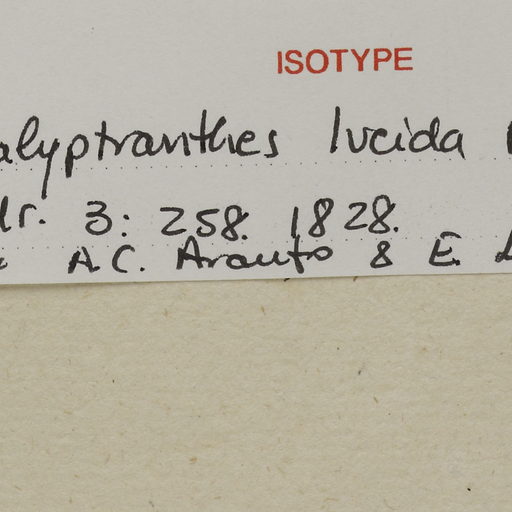 ISOTYPE
alyptranthes lucida
dr. 3: 258. 1828.
A.C. Arauto & E.